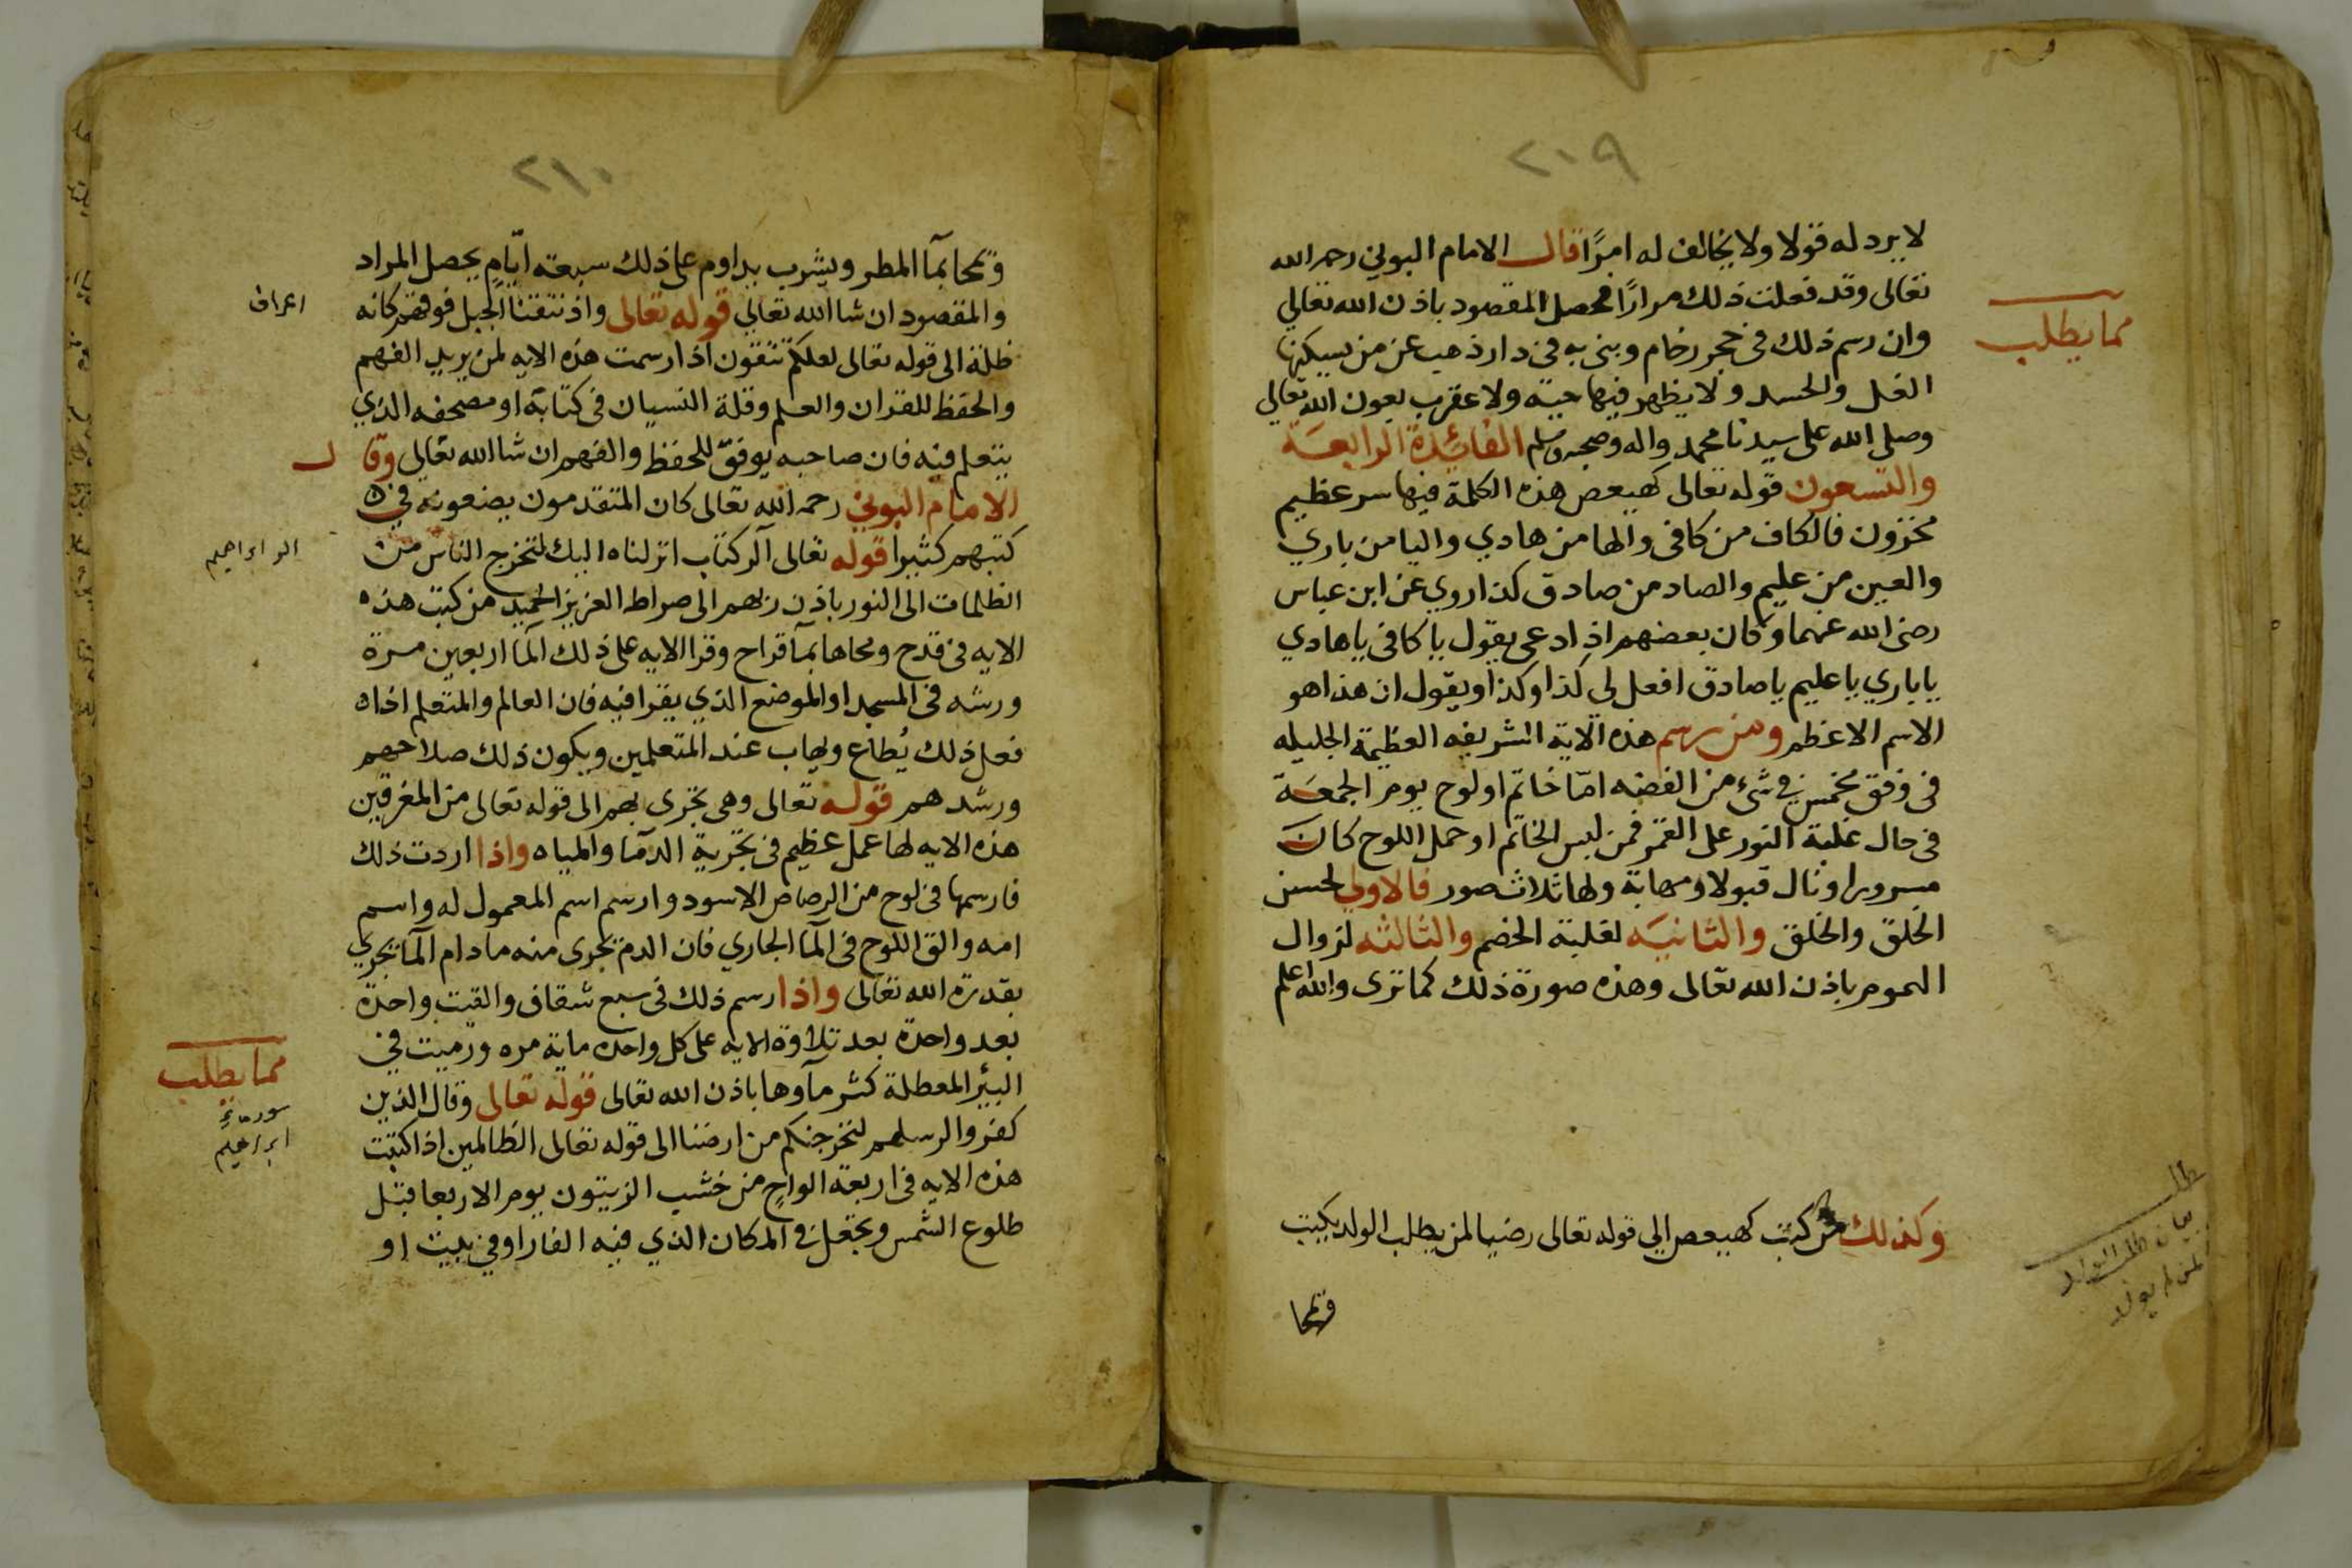 ٢٠٩
لا يرد له قولا ولا يخالف له امرًا قال الامام البوني رحمه الله
تعالى وقد فعلت ذلك مرارًا فحصل المقصود باذن الله تعالي
وان رسم ذلك في حجر رخام وبنى به في دار ذهب عن من يسكنها
الغل والحسد ولا يظهر فيها حية ولا عقرب بعون الله تعالي
وصلى الله على سيدنا محمد واله وصحبه وسلم الفائدة الرابعة
والتسعون قوله تعالى كهيعص هذه الكلمة فيها سر عظيم
مخزون فالكاف من كافى والها من هادي واليا من باري
والعين من عليم والصاد من صادق كذا روي عن ابن عباس
رضى الله عنهما وكان بعضهم اذ ادعى يقول يا كافى يا هادي
يا باري يا عليم يا صادق افعل لي كذا وكذا ويقول ان هذا هو
الاسم الاعظم ومن رسم هذه الاية الشريفه العظيمة الجليله
فى وفق مخمس في شىء من الفضه امّا خاتم او لوح يوم الجمعة
فى حال غلبة النور على القمر فمن لبس الخاتم او حمل اللوح كان
مسرورا ونال قبولا ومهابة ولها ثلاث صور فالاولي لحسن
الخلق والخلق والثانيه لغلبة الخصم والثالثه لزوال
الهموم باذن الله تعالى وهذه صورة ذلك كما ترى والله اعلم
وكذلك من كتب كهيعص الي قوله تعالى رضيا لمن يطلب الولد يكتب
وتمحا
مما يطلب
طلب
بيان طلب الولد
لمن لم يولد
٢١٠
وتمحا بمآ المطر ويشرب يداوم على ذلك سبعة ايّامٍ يحصل المراد
والمقصود ان شا الله تعالي قوله تعالى واذ نتقنا الجبل فوقهم كانه
ظلة الى قوله تعالى لعلكم تتقون اذا رسمت هذه الايه لمن يريد الفهم
والحفظ للقران والعلم وقلة النسيان فى كتابه او مصحفه الذي
يتعلم فيه فان صاحبه يوفق للحفظ والفهم ان شا الله تعالي وقال
الامام البوني رحمه الله تعالى كان المتقدمون يصنعونه في
كتبهم كثيرا قوله تعالى الر كتاب انزلناه اليك لتخرج الناس من
الظلمات الى النور باذن ربهم الى صراط العزيز الحميد من كتب هذه
الايه فى قدح ومحاها بمآ قراح وقرا الايه على ذلك المآ اربعين مرة
ورشه فى المسجد او الموضع الذي يقرا فيه فان العالم والمتعلم اذا
فعل ذلك يُطاع ويهاب عند المتعلمين ويكون ذلك صلاحهم
ورشدهم قوله تعالى وهى تجرى بهم الى قوله تعالى من المغرقين
هذه الايه لها عمل عظيم فى تجرية الدمآ والمياه واذا اردت ذلك
فارسمها فى لوح من الرصاص الاسود وارسم اسم المعمول له واسم
امه والق اللوح فى المآ الجاري فان الدم تجرى منه مادام المآ تجري
بقدرة الله تعالى واذا رسم ذلك فى سبع شقاف والقيت واحدة
بعد واحدة بعد تلاوة الايه على كل واحده ماية مره ورميت فى
البئر المعطلة كثر مآوها باذن الله تعالى قوله تعالى وقال الذين
كفروا لرسلهم لنخرجنكم من ارضنا الى قوله تعالى الظالمين اذا كتبت
هذه الايه فى اربعة الواحٍ من خشب الزيتون يوم الاربعا قبل
طلوع الشمس وتجعل في المكان الذي فيه الفار او في بيت او
اعراف
الر ابراهيم
مما يطلب
سورة
ابراهيم